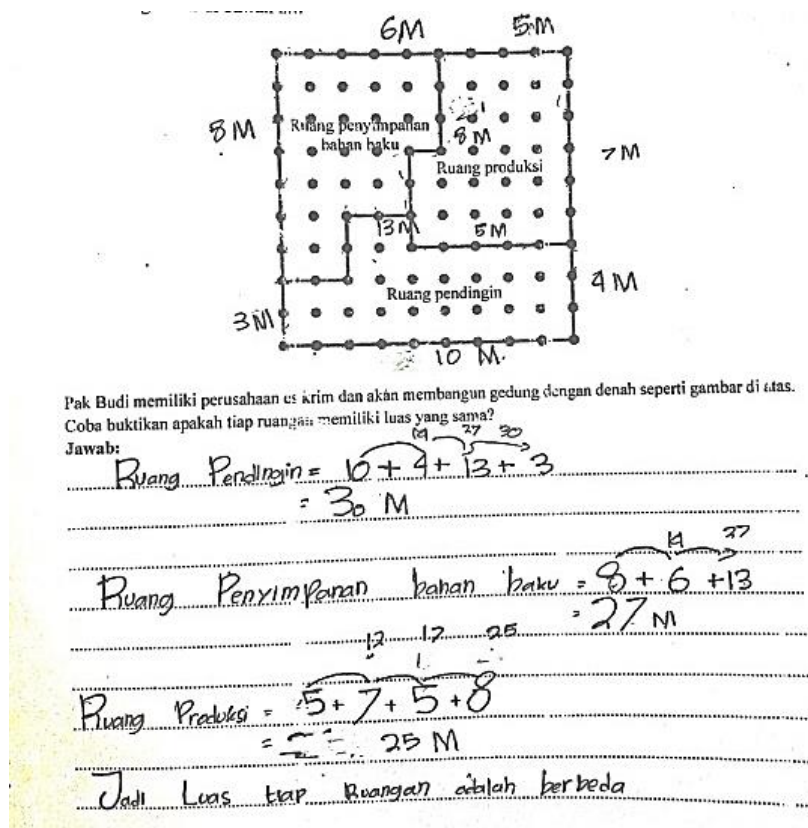 6M 5M
8M
Ruang penyimpanan
bahan baku
8M
Ruang produksi
7M
13M
5M
4M
Ruang pendingin
3M
10 M.
Pak Budi memiliki perusahaan es krim dan akan membangun gedung dengan denah seperti gambar di atas.
Coba buktikan apakah tiap ruangan memiliki luas yang sama?
14 27 30
Jawab:
Ruang Pendingin = 10 + 4 + 13 + 3
= 30 M
14 27
Ruang Penyimpanan bahan baku = 8 + 6 + 13
= 27 M
12 17 25
Ruang Produksi = 5 + 7 + 5 + 8
= 25 M
Jadi Luas tiap Ruangan adalah berbeda